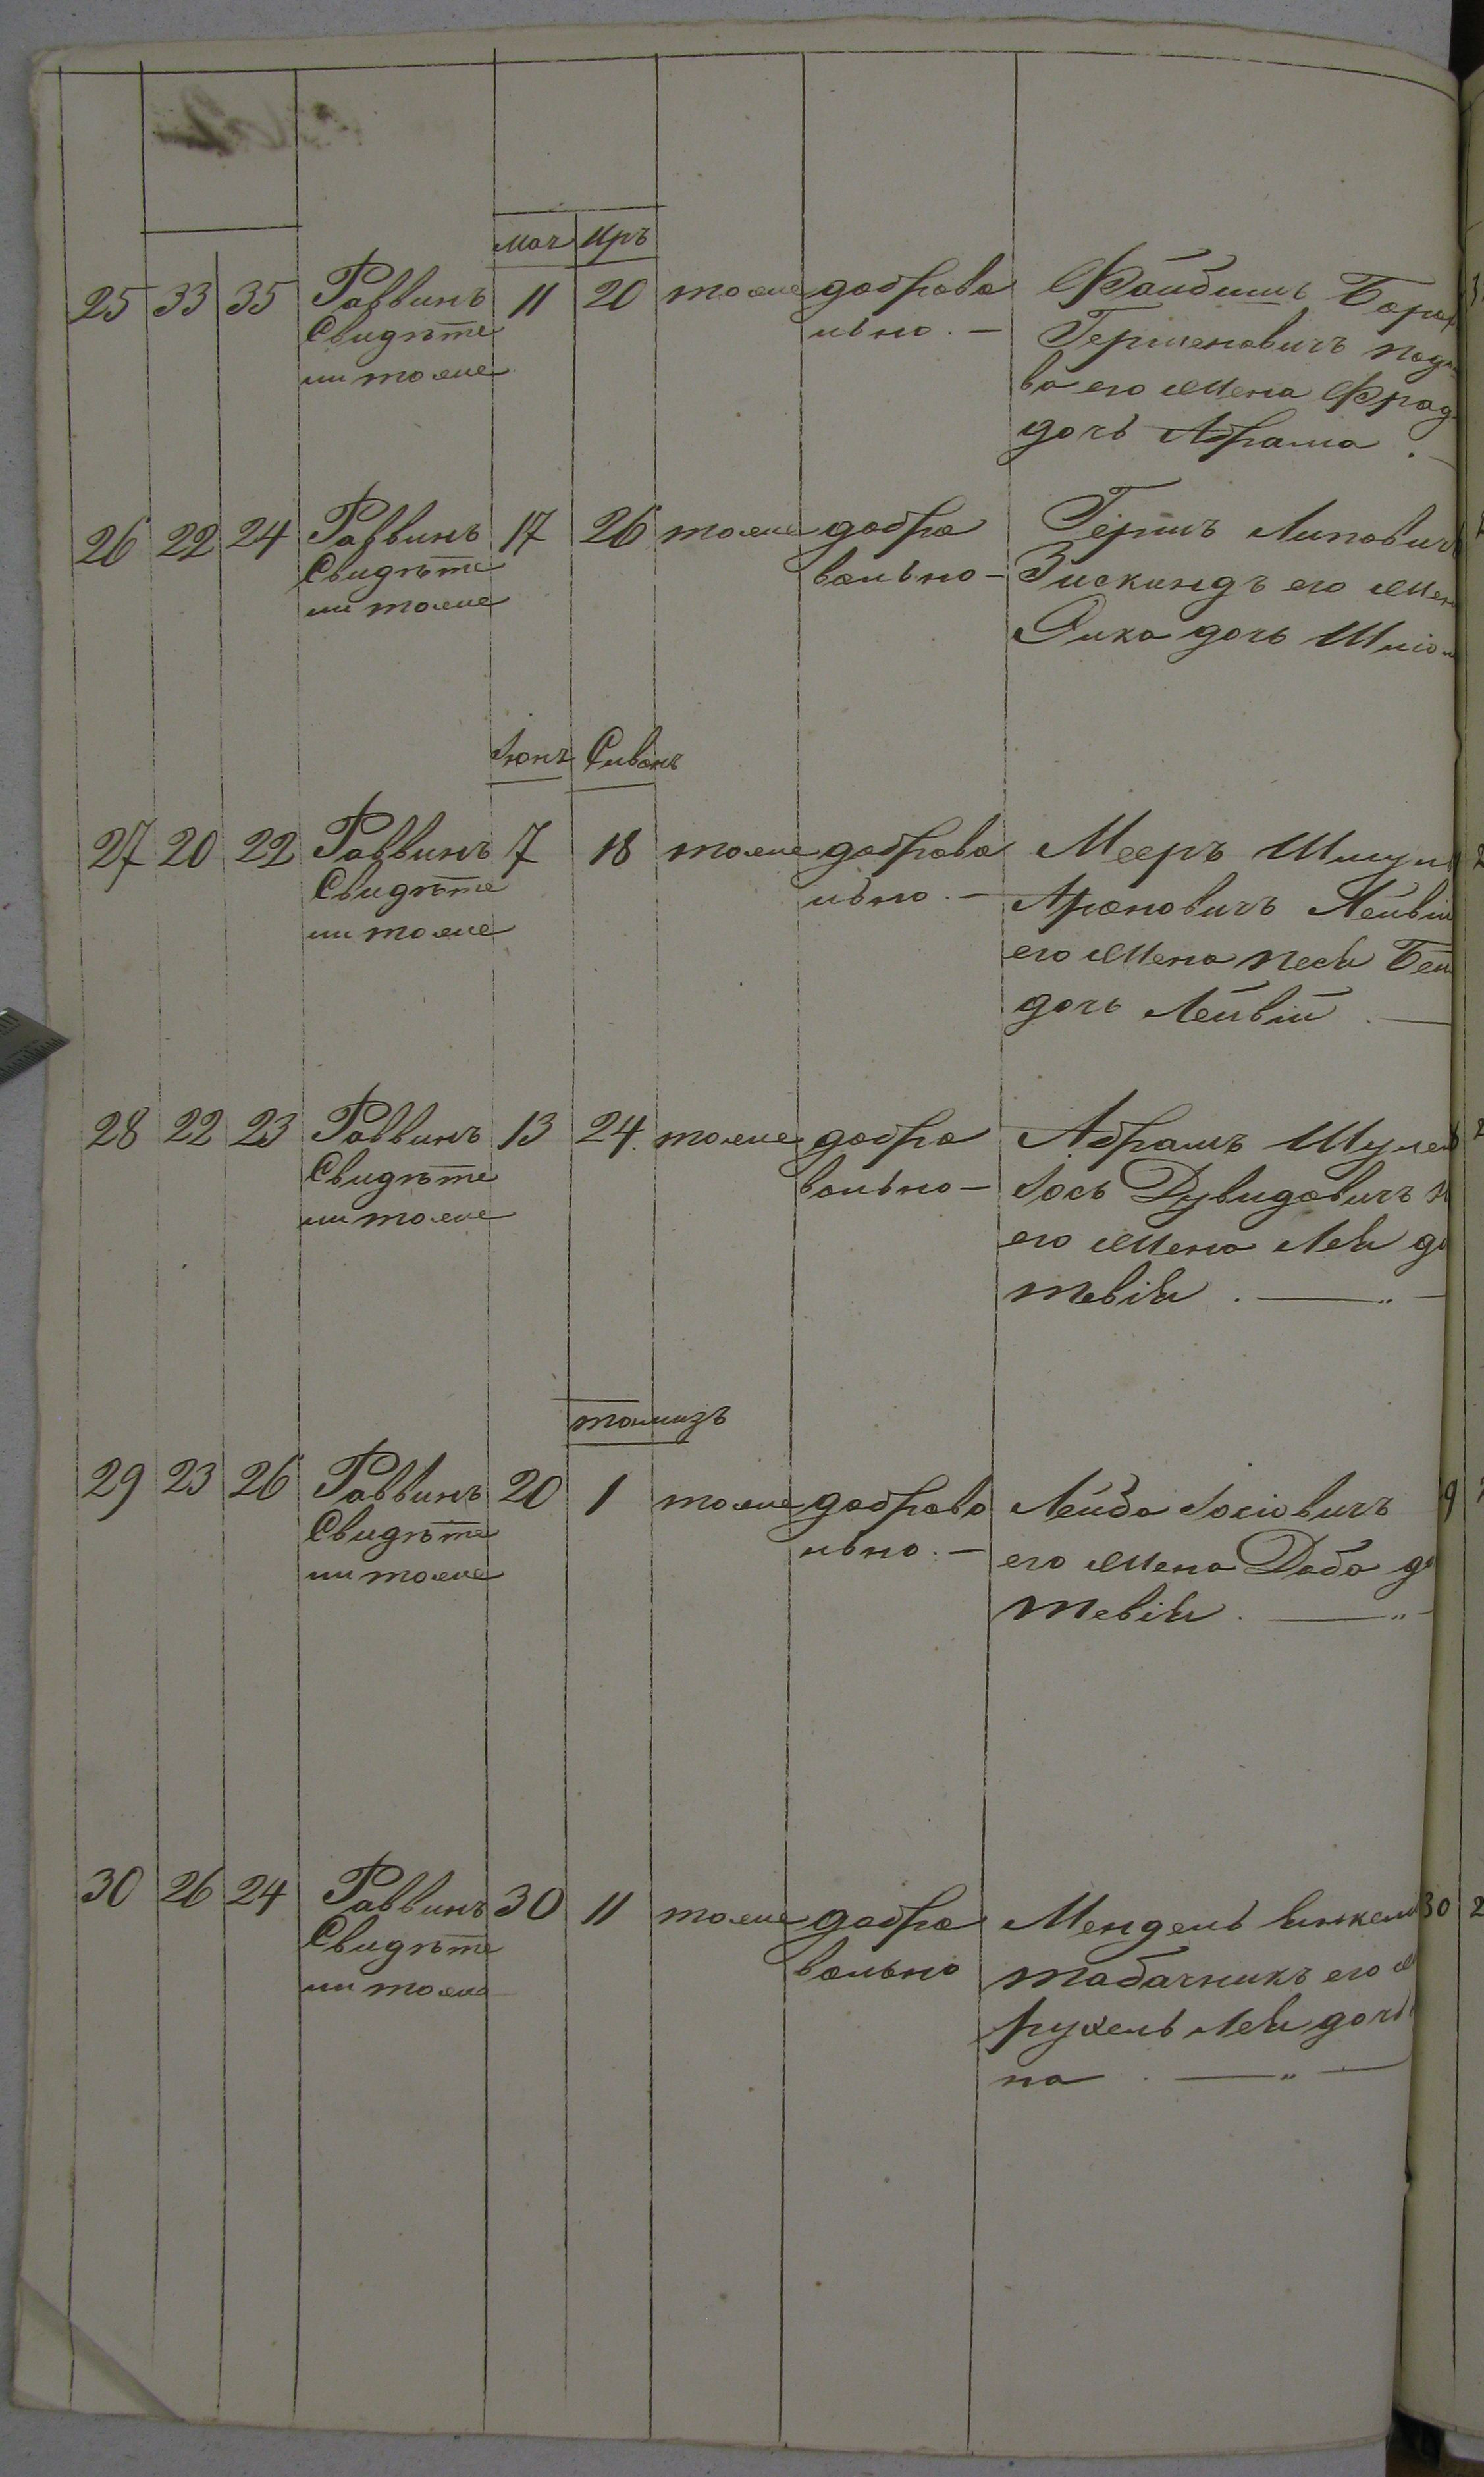 Мая Иръ
25 33 35 Раввинъ 11 20 тоже доброво Файбишъ Борох
Свидѣте льно. — Гершеновичъ
ли тоже ва его жена Фрад
дочь Абрама . —
26 22 24 Раввинъ 17 26 тоже добро Гершъ Липовичъ
Свидѣте вольно — Зискиндъ его жен
ли тоже дочь
Іюнъ Сиванъ
27 20 22 Раввинъ 7 18 тоже доброво Мееръ Шмуль
Свидѣте льно. — Ароновичъ
ли тоже его жена песя
дочь Лейвiи . —
28 22 23 Раввинъ 13 24. тоже добро Абрамъ
Свидѣте вольно — Іось Дувидовичъ
ли тоже его жена Лея до
тевiя . — „ —
тамизъ
29 23 26 Раввинъ 20 1 тоже доброво Лейба Іосіовичъ
Свидѣте льно. — его жена Доба до
ли тоже тевiя . — „ —
30 26 24 Раввинъ 30 11 тоже добро Мендель
Свидѣте вольно табачникъ его
ли тоже рухель Лея дочь
на . — „ —